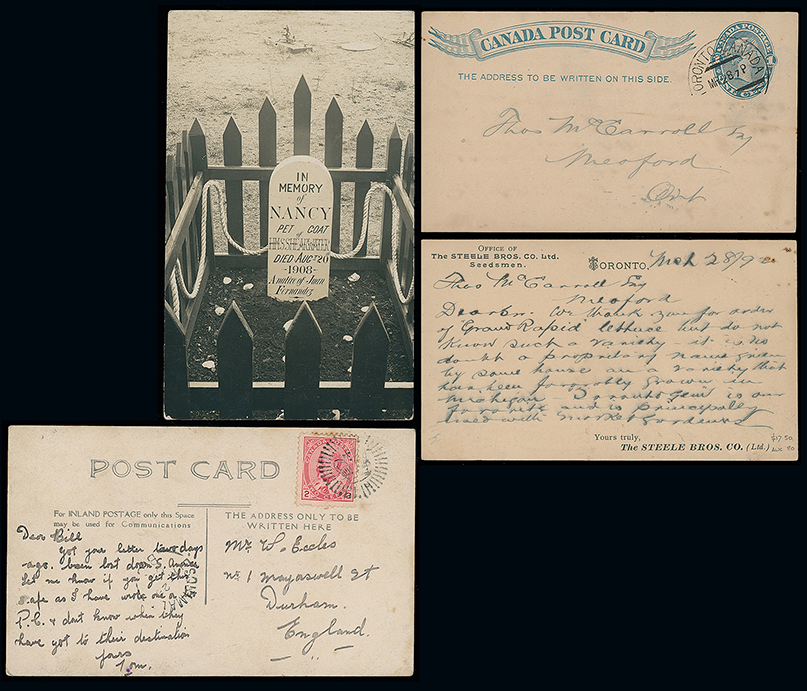 IN
MEMORY
of
NANCY
PET COAT
of
H.M.S. SHEARWATER
DIED AUGST 20
-1908-
A native of Juan
Fernandez
CANADA POST CARD
CANADA POSTAGE
ONE CENT
THE ADDRESS TO BE WRITTEN ON THIS SIDE.
TORONTO CANADA
Thos McCarroll Esq
Meaford
Ont
OFFICE OF
The STEELE BROS. CO. Ltd.
Seedsmen.
TORONTO, Mch 28/92
Thos McCarroll Esq
Meaford
Dear Sir: We thank you for order
of "Grand Rapid" lettuce but do not
know such a variety - it is no
doubt a proprietary name given
by some house on a variety that
has been favorably grown in
Michigan - Toronto Gem is our
favorite and is principally
used with market gardeners
Yours truly,
The STEELE BROS. CO. (Ltd.)
$17.50
POST CARD
CANADA
2
For INLAND POSTAGE only this Space
may be used for Communications
THE ADDRESS ONLY TO BE
WRITTEN HERE
Dear Bill
Got your letter two days
ago. been lost down S. America
Let me know if you get this
safe as I have wrote one or
P.C. & dont know when they
have got to their destination
Yours
Tom.
Mr W. Eccles
No 1 Mayorswell St
Durham.
England.